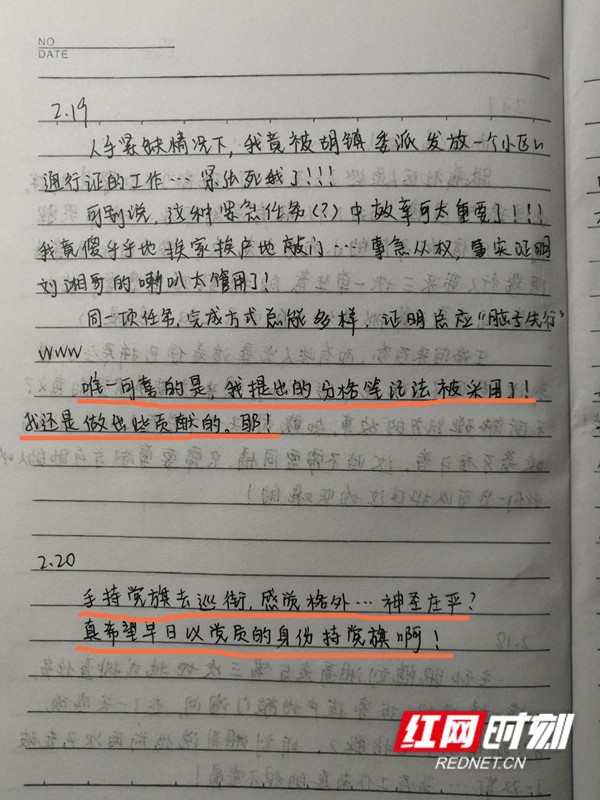 NO
DATE
2.19
人手紧缺情况下,我竟被胡镇委派发放一个小区
通行证的工作…紧张死我了!!!
可别说,这种紧急任务(?)中效率可太重要了!!!!
我竟傻乎乎地挨家挨户地敲门…事急从权,事实证明
刘湘哥的喇叭太管用了!
同一项任务,完成方式总能多样,证明总应“脑子先行”
www
唯一可喜的是,我提出的分格笔记法被采用了!
我还是做出些贡献的。耶!
2.20
手持党旗去巡街,感觉格外…神圣庄严?
真希望早日以党员的身份持党旗啊!
红网时刻
REDNET.CN